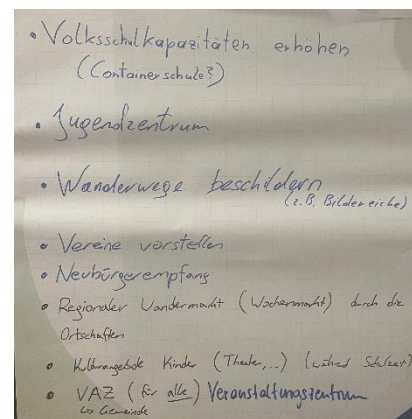 • Volksschulkapazitäten erhöhen
(Containerschule?)
• Jugendzentrum
• Wanderwege beschildern
(z.B. Bildereiche)
• Vereine vorstellen
• Neubürgerempfang
• Regionaler Wandermarkt (Wochenmarkt) durch die
Ortschaften
• Kulturangebote Kinder (Theater,...) (während Schulzeit)
• VAZ (für alle) Veranstaltungszentrum
↳ Gemeinde